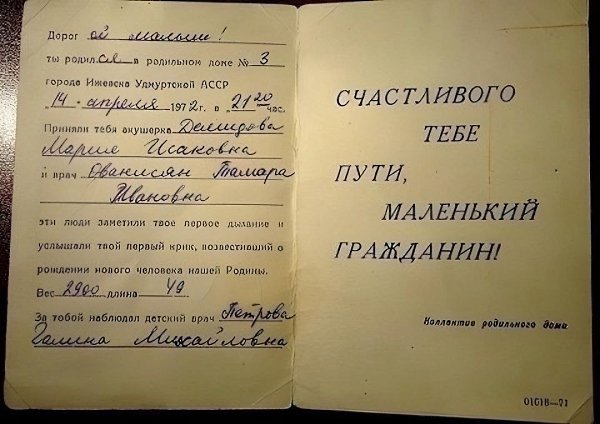 Дорогой малыш!
ты родился в родильном доме № 3
города Ижевска Удмуртской АССР
„14“ апреля 1972г. в „21 20 час.
Приняли тебя акушерка Демидова
Мария Исаковна
и врач Ованисян Тамара
Ивановна
эти люди заметили твое первое дыхание и
услышали твой первый крик, возвестивший о
рождении нового человека нашей Родины.
Вес 2900 длина 49
За тобой наблюдал детский врач Петрова
Галина Михайловна
СЧАСТЛИВОГО
ТЕБЕ
ПУТИ,
МАЛЕНЬКИЙ
ГРАЖДАНИН!
Коллектив родильного дома.
01618—71